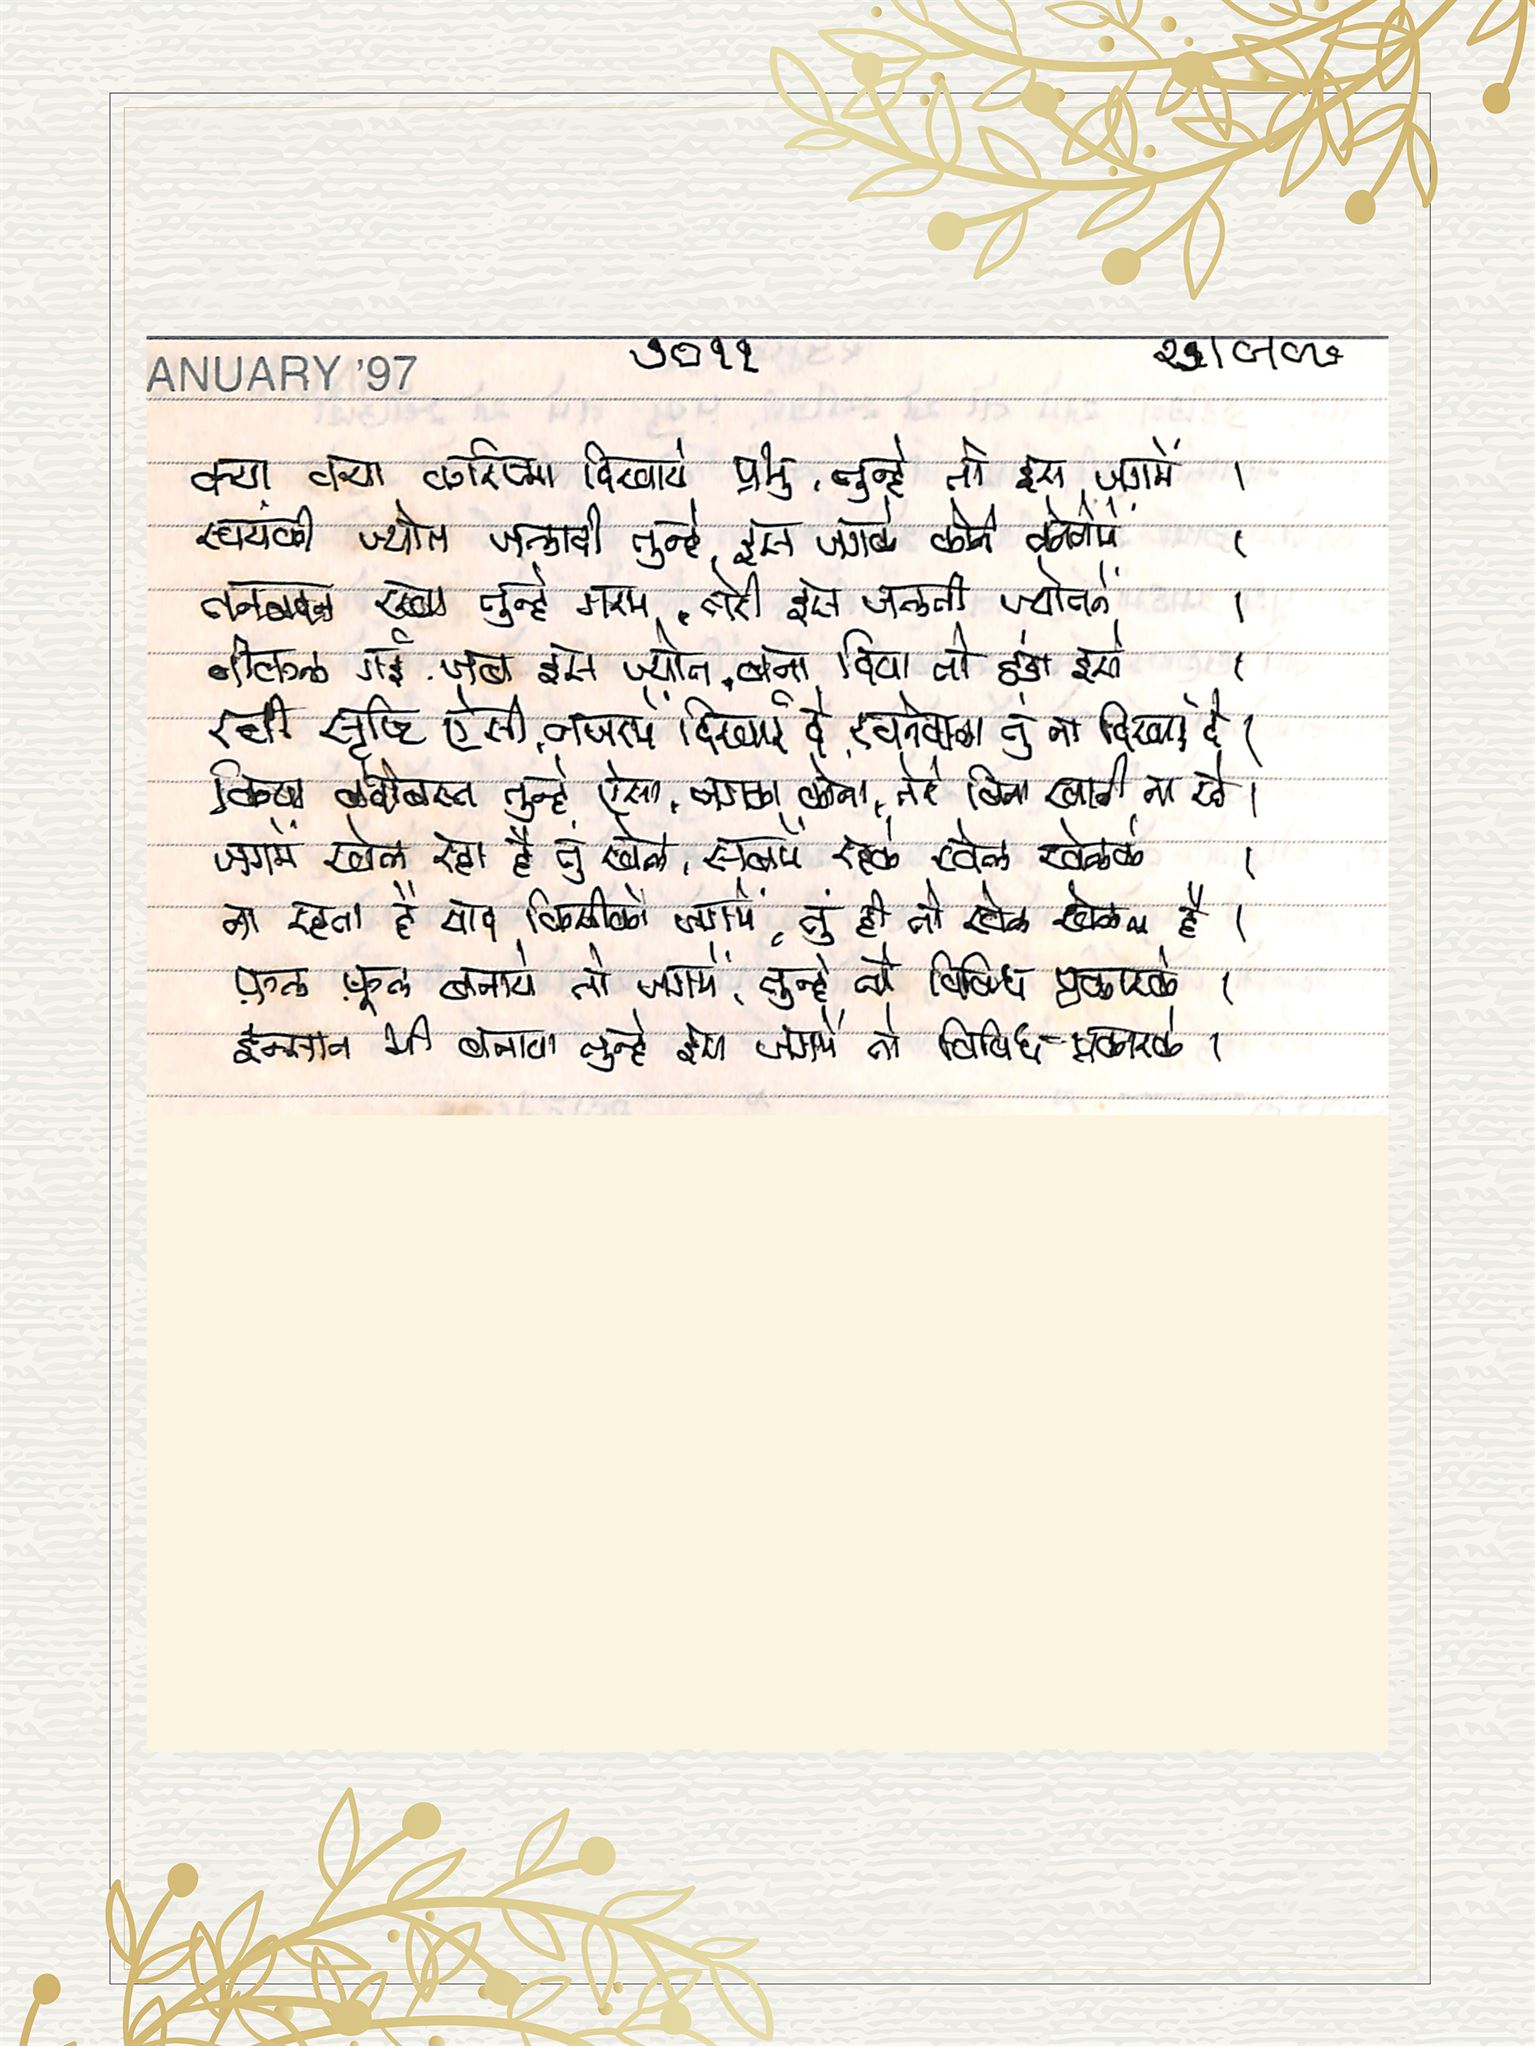 ANUARY '97 ७०११
क्या क्या करिश्मा दिखाये प्रभु, तुन्हे तो इस जगमें ।
स्वयंकी ज्योत जलादी तुन्हे, इस जगके कोने कोनेमें ।
तनबदन रखा तुन्हे गरम, तेरी इस जलती ज्योतने ।
नीकल गई जब इस ज्योत, बना दिया तो ठंडा इसे ।
रची सृष्टि ऐसी, नजरमें दिखाई दे, रचनेवाला तुं ना दिखाई दे ।
किया बंदोबस्त तुन्हे ऐसा, जगका कोना, तेरे बिना खाली ना रहे ।
जगमें खेल रहा है तुं खेल, सबमें रहके खेल खेलके ।
ना रहता है याद किसीको जगमें, तुं ही तो खेल खेलता है ।
फ़ल फ़ूल बनाये तो जगमें, तुन्हे तो विविध प्रकारके ।
इन्सान भी बनाया तुन्हे इस जगमें तो विविध प्रकारके ।